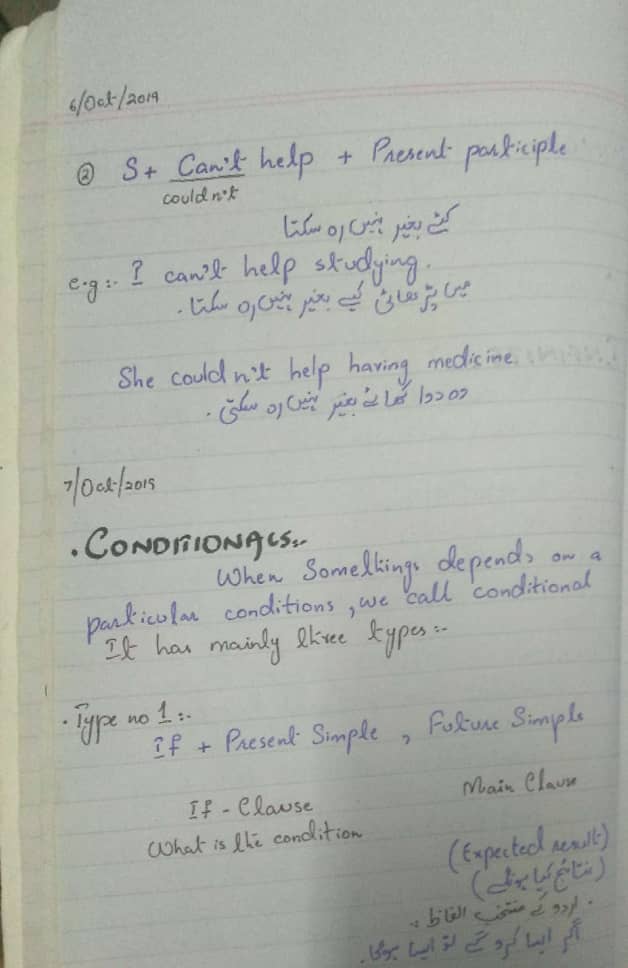 6/Oct/2019
② S + Can't help + Present participle
couldn't
کئے بغیر نہیں رہ سکتا
e.g:- I can't help studying.
میں پڑھائی کیے بغیر نہیں رہ سکتا۔
She couldn't help having medicine.
وہ دوا کھائے بغیر نہیں رہ سکتی۔
7/Oct/2019
. CONDITIONALS:-
When Somethings depends on a
particular conditions, we call conditional
It has mainly three types:-
. Type no 1:-
If + Present Simple , Future Simple
If - Clause Main Clause
What is the condition (Expected result)
(نتائج کیا ہونگے)
. اردو کے منتخب الفاظ :
اگر ایسا کرو گے تو ایسا ہوگا۔